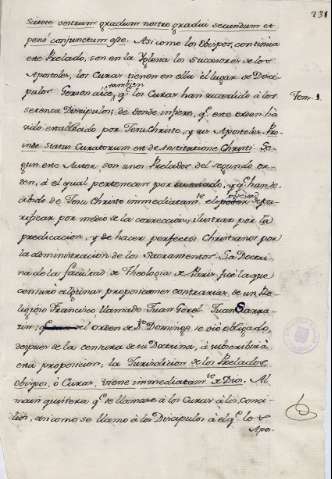 231
sacere sentrum gradum nostro gradui secundum et
pene conjunctum ope. Asi como los Obispos, continua
este Prelado, son en la Yglesia los sucesores de los
Apostoles, los Curas tienen en ella el lugar de Disci
pulos. Gerson dice, qe los Curas han sucedido à los
tambien
Tom. 1.
setenta Discipulos, de donde infiere, qe este orden ha
sido establecido por Jesu Christo, y sus Apostoles.
inde status Curatorum est de Institutione Christi. Se
gun este Autor, son unos Prelados del segundo or
den, à el qual pertenecen por y qe han
cibido de Jesu Christo immediatamte el poder de pu
rificar por medio de la correccion, ilustrar por la
predicacion, y de hacer perfectos Christianos por
la administracion de los Sacramentos. La Doctri
na de la facultad de Theologia de Paris fue la que
censuró algunas proposiciones contrarias, de un Re
ligioso Francisco llamado Juan Gorel. Juan Sarra
cin del orden de Sto Domingo se vió obligado,
despues de la censura de su Doctrina, à subscribir à
esta proposicion, la Jurisdiccion de los Prelados
obispos, ò Curas, viene immediatamte de Dios. Al
main quisiera qe se llamase à los Curas à los conci
lios, asi como se llamó à los Discipulos à el qe los
Apo-